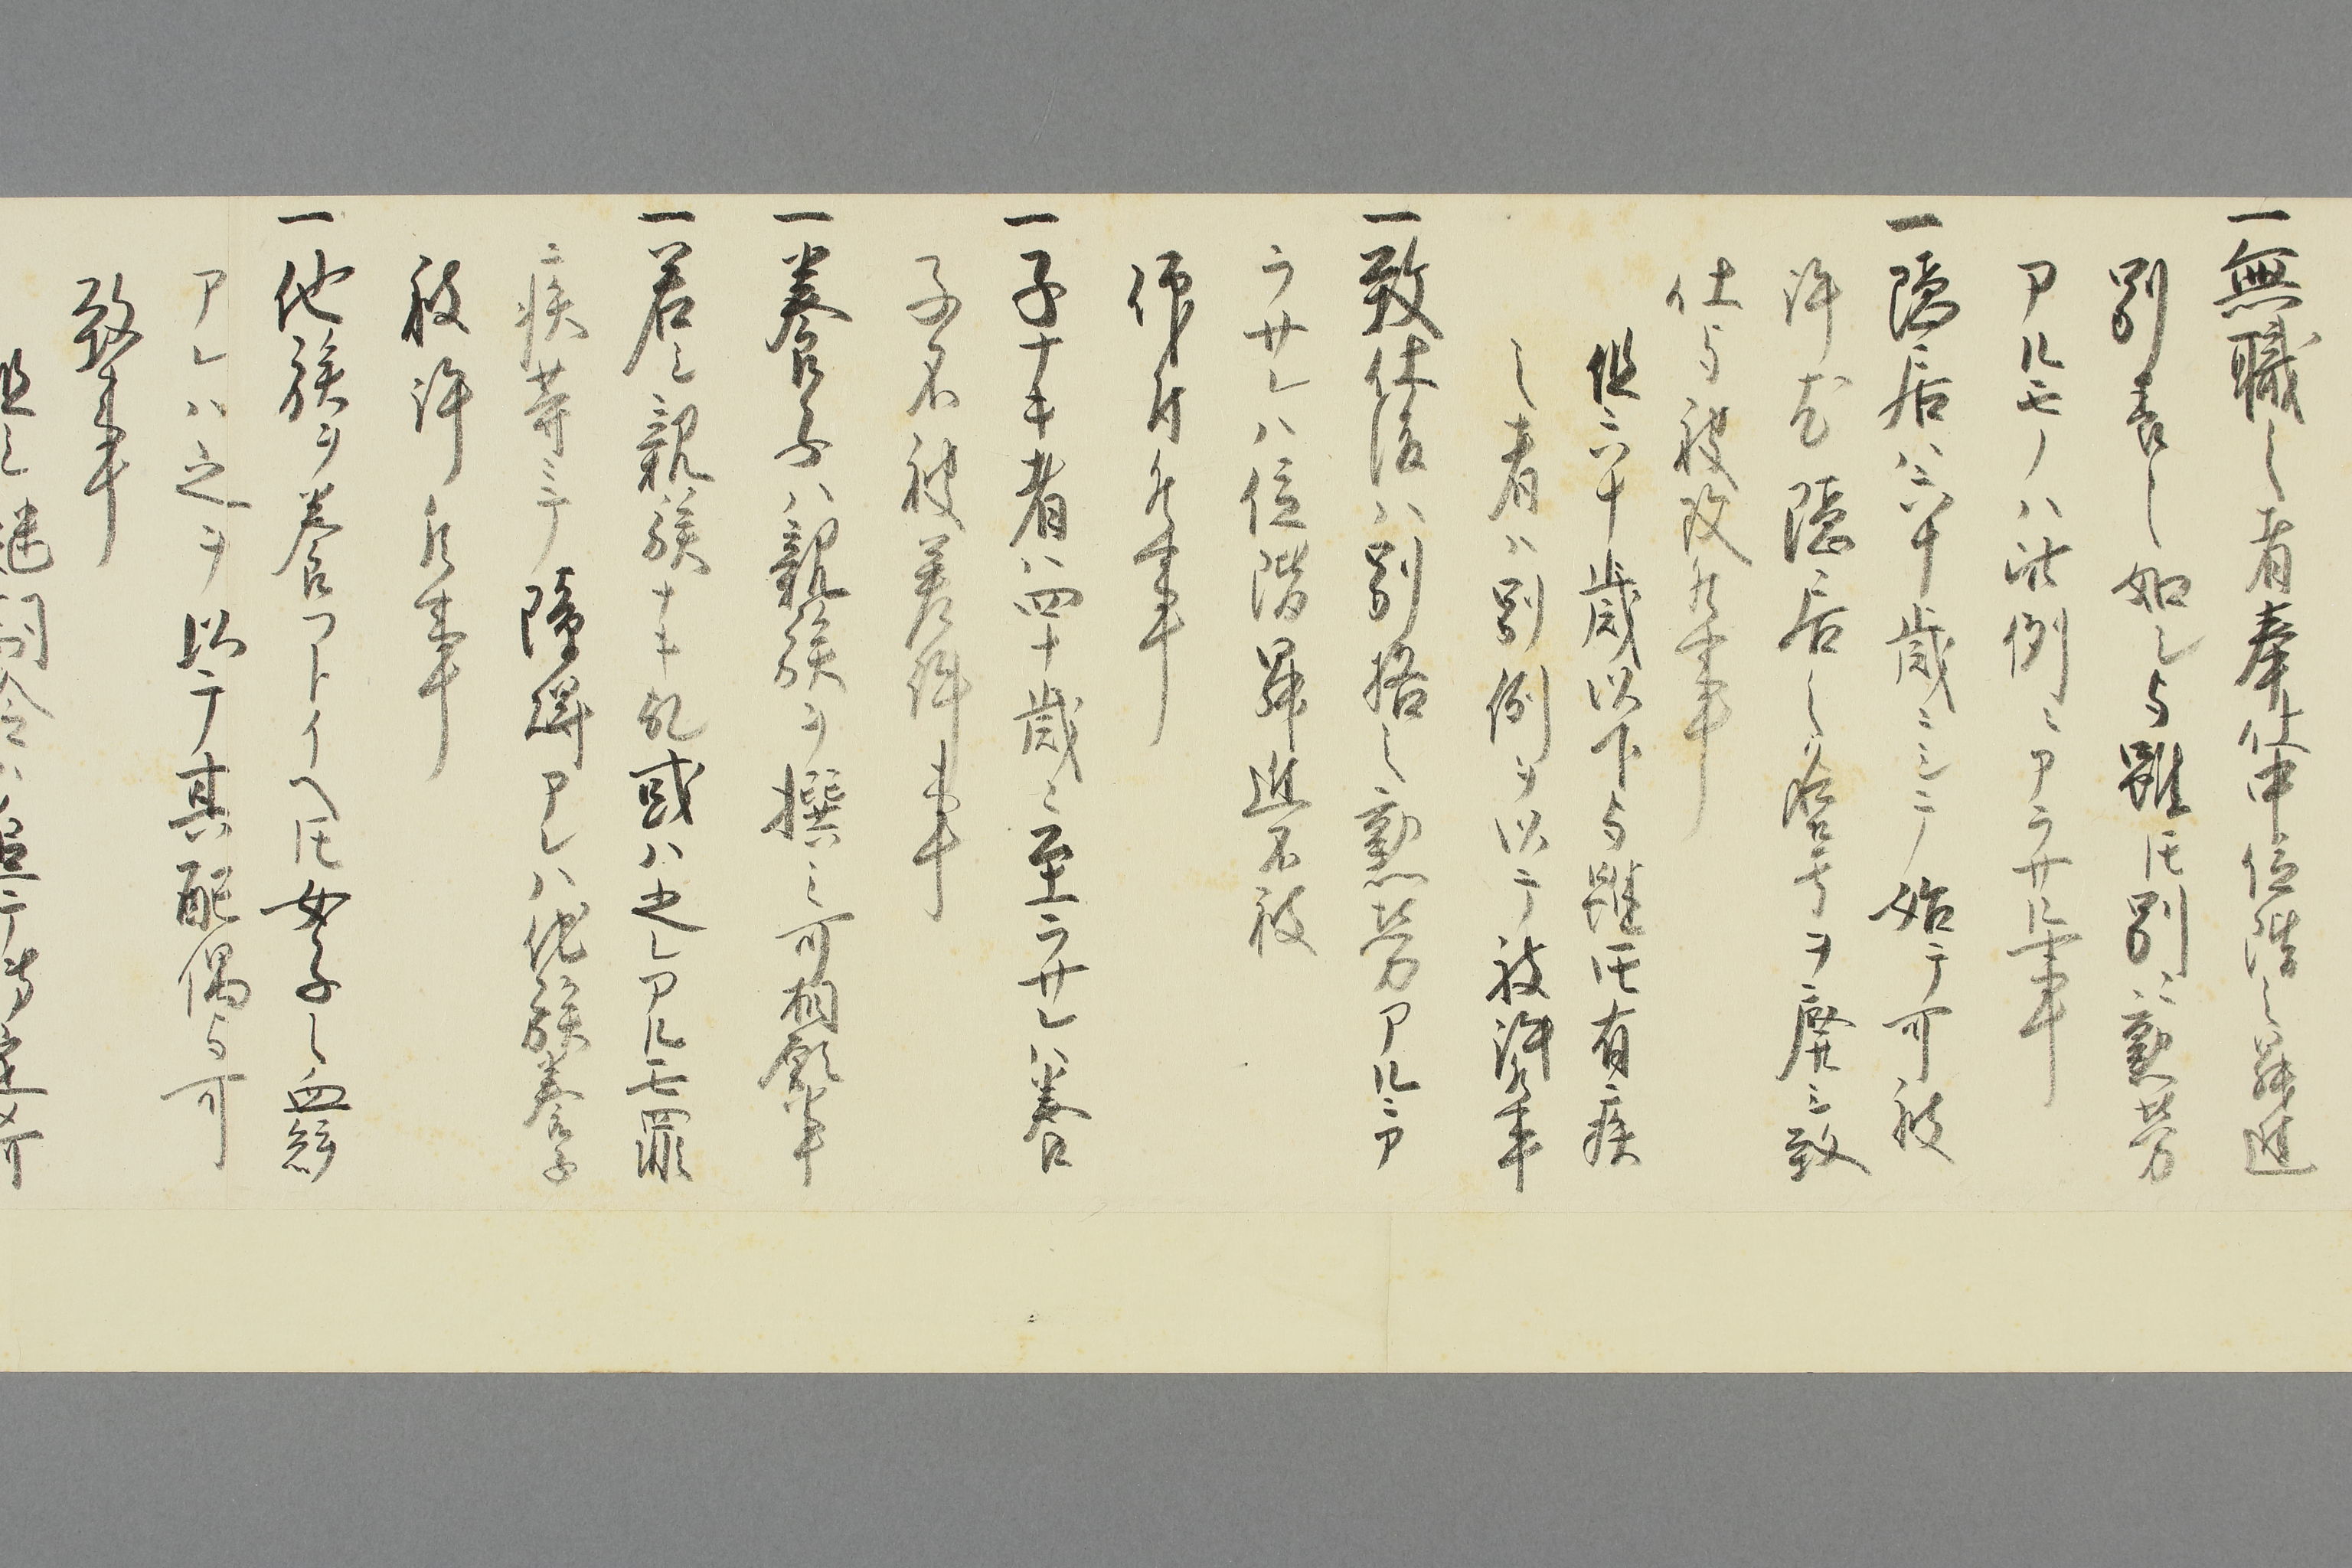 一無職之者奉仕中位階之昇進
別表之如シト雖𪜈別ニ勤労
アルモノハ此例ニアラサル事
一隠居ハ六十歳ニシテ始テ可被
許尤隠居之名号ヲ廃シ致
仕ト被改候事
但六十歳以下ト雖𪜈有疾
之者ハ別例ヲ以テ被許候事
一致仕後ハ別格之勤労アルニア
ラサレハ位階昇進不被
仰付候事
一子ナキ者ハ四十歳ニ至ラサレハ養
子不被差許事
一養子ハ親族ヲ撰ミ可相願事
一若シ親族ナキ乱或ハ之レアルモ罪
疾等ニテ障碍アレハ他族養子
被許候事
一他族ヲ養フトイヘ𪜈女子之血縁
アレハ之ヲ以テ其配偶ト可
致事
但シ